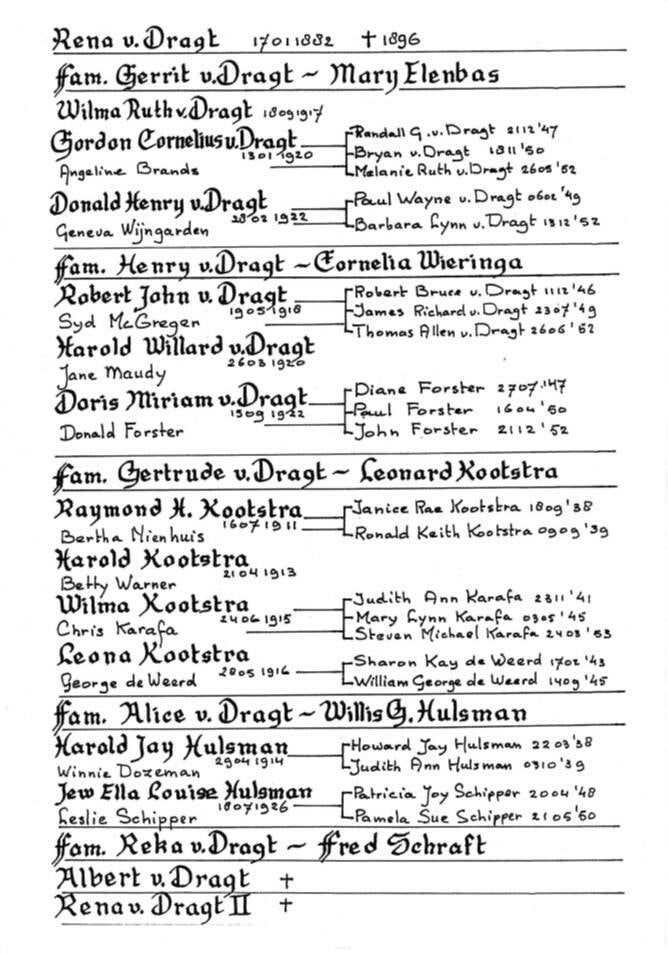 Rena v. Dragt 17011882 † 1896
Fam. Gerrit v. Dragt ~ Mary Elenbas
Wilma Ruth v. Dragt 18091917
Gordon Cornelius v. Dragt 13011920
Angeline Brands
Randall G. v. Dragt 2112 '47
Bryan v. Dragt 1811 '50
Melanie Ruth v. Dragt 2605 '52
Donald Henry v. Dragt 28021922
Geneva Wijngarden
Paul Wayne v. Dragt 0602 '49
Barbara Lynn v. Dragt 1312 '52
Fam. Henry v. Dragt ~ Cornelia Wieringa
Robert John v. Dragt 19051918
Syd McGreger
Robert Bruce v. Dragt 1112 '46
James Richard v. Dragt 2307 '49
Thomas Allen v. Dragt 2606 '52
Harold Willard v. Dragt 26031920
Jane Maudy
Doris Miriam v. Dragt 15091922
Donald Forster
Diane Forster 2707 '47
Paul Forster 1604 '50
John Forster 2112 '52
Fam. Gertrude v. Dragt ~ Leonard Kootstra
Raymond H. Kootstra 16071911
Bertha Nienhuis
Janice Rae Kootstra 1809 '38
Ronald Keith Kootstra 0909 '39
Harold Kootstra 21041913
Betty Warner
Wilma Kootstra 24061915
Chris Karafa
Judith Ann Karafa 2311 '41
Mary Lynn Karafa 0305 '45
Steven Michael Karafa 2403 '53
Leona Kootstra 28051916
George de Weerd
Sharon Kay de Weerd 1702 '43
William George de Weerd 1409 '45
Fam. Alice v. Dragt ~ Willis G. Hulsman
Harold Jay Hulsman 29041914
Winnie Dozeman
Howard Jay Hulsman 2203 '38
Judith Ann Hulsman 0310 '39
Jew Ella Louise Hulsman 18071926
Leslie Schipper
Patricia Joy Schipper 2004 '48
Pamela Sue Schipper 2105 '50
Fam. Reka v. Dragt ~ Fred Schraft
Albert v. Dragt †
Rena v. Dragt II †